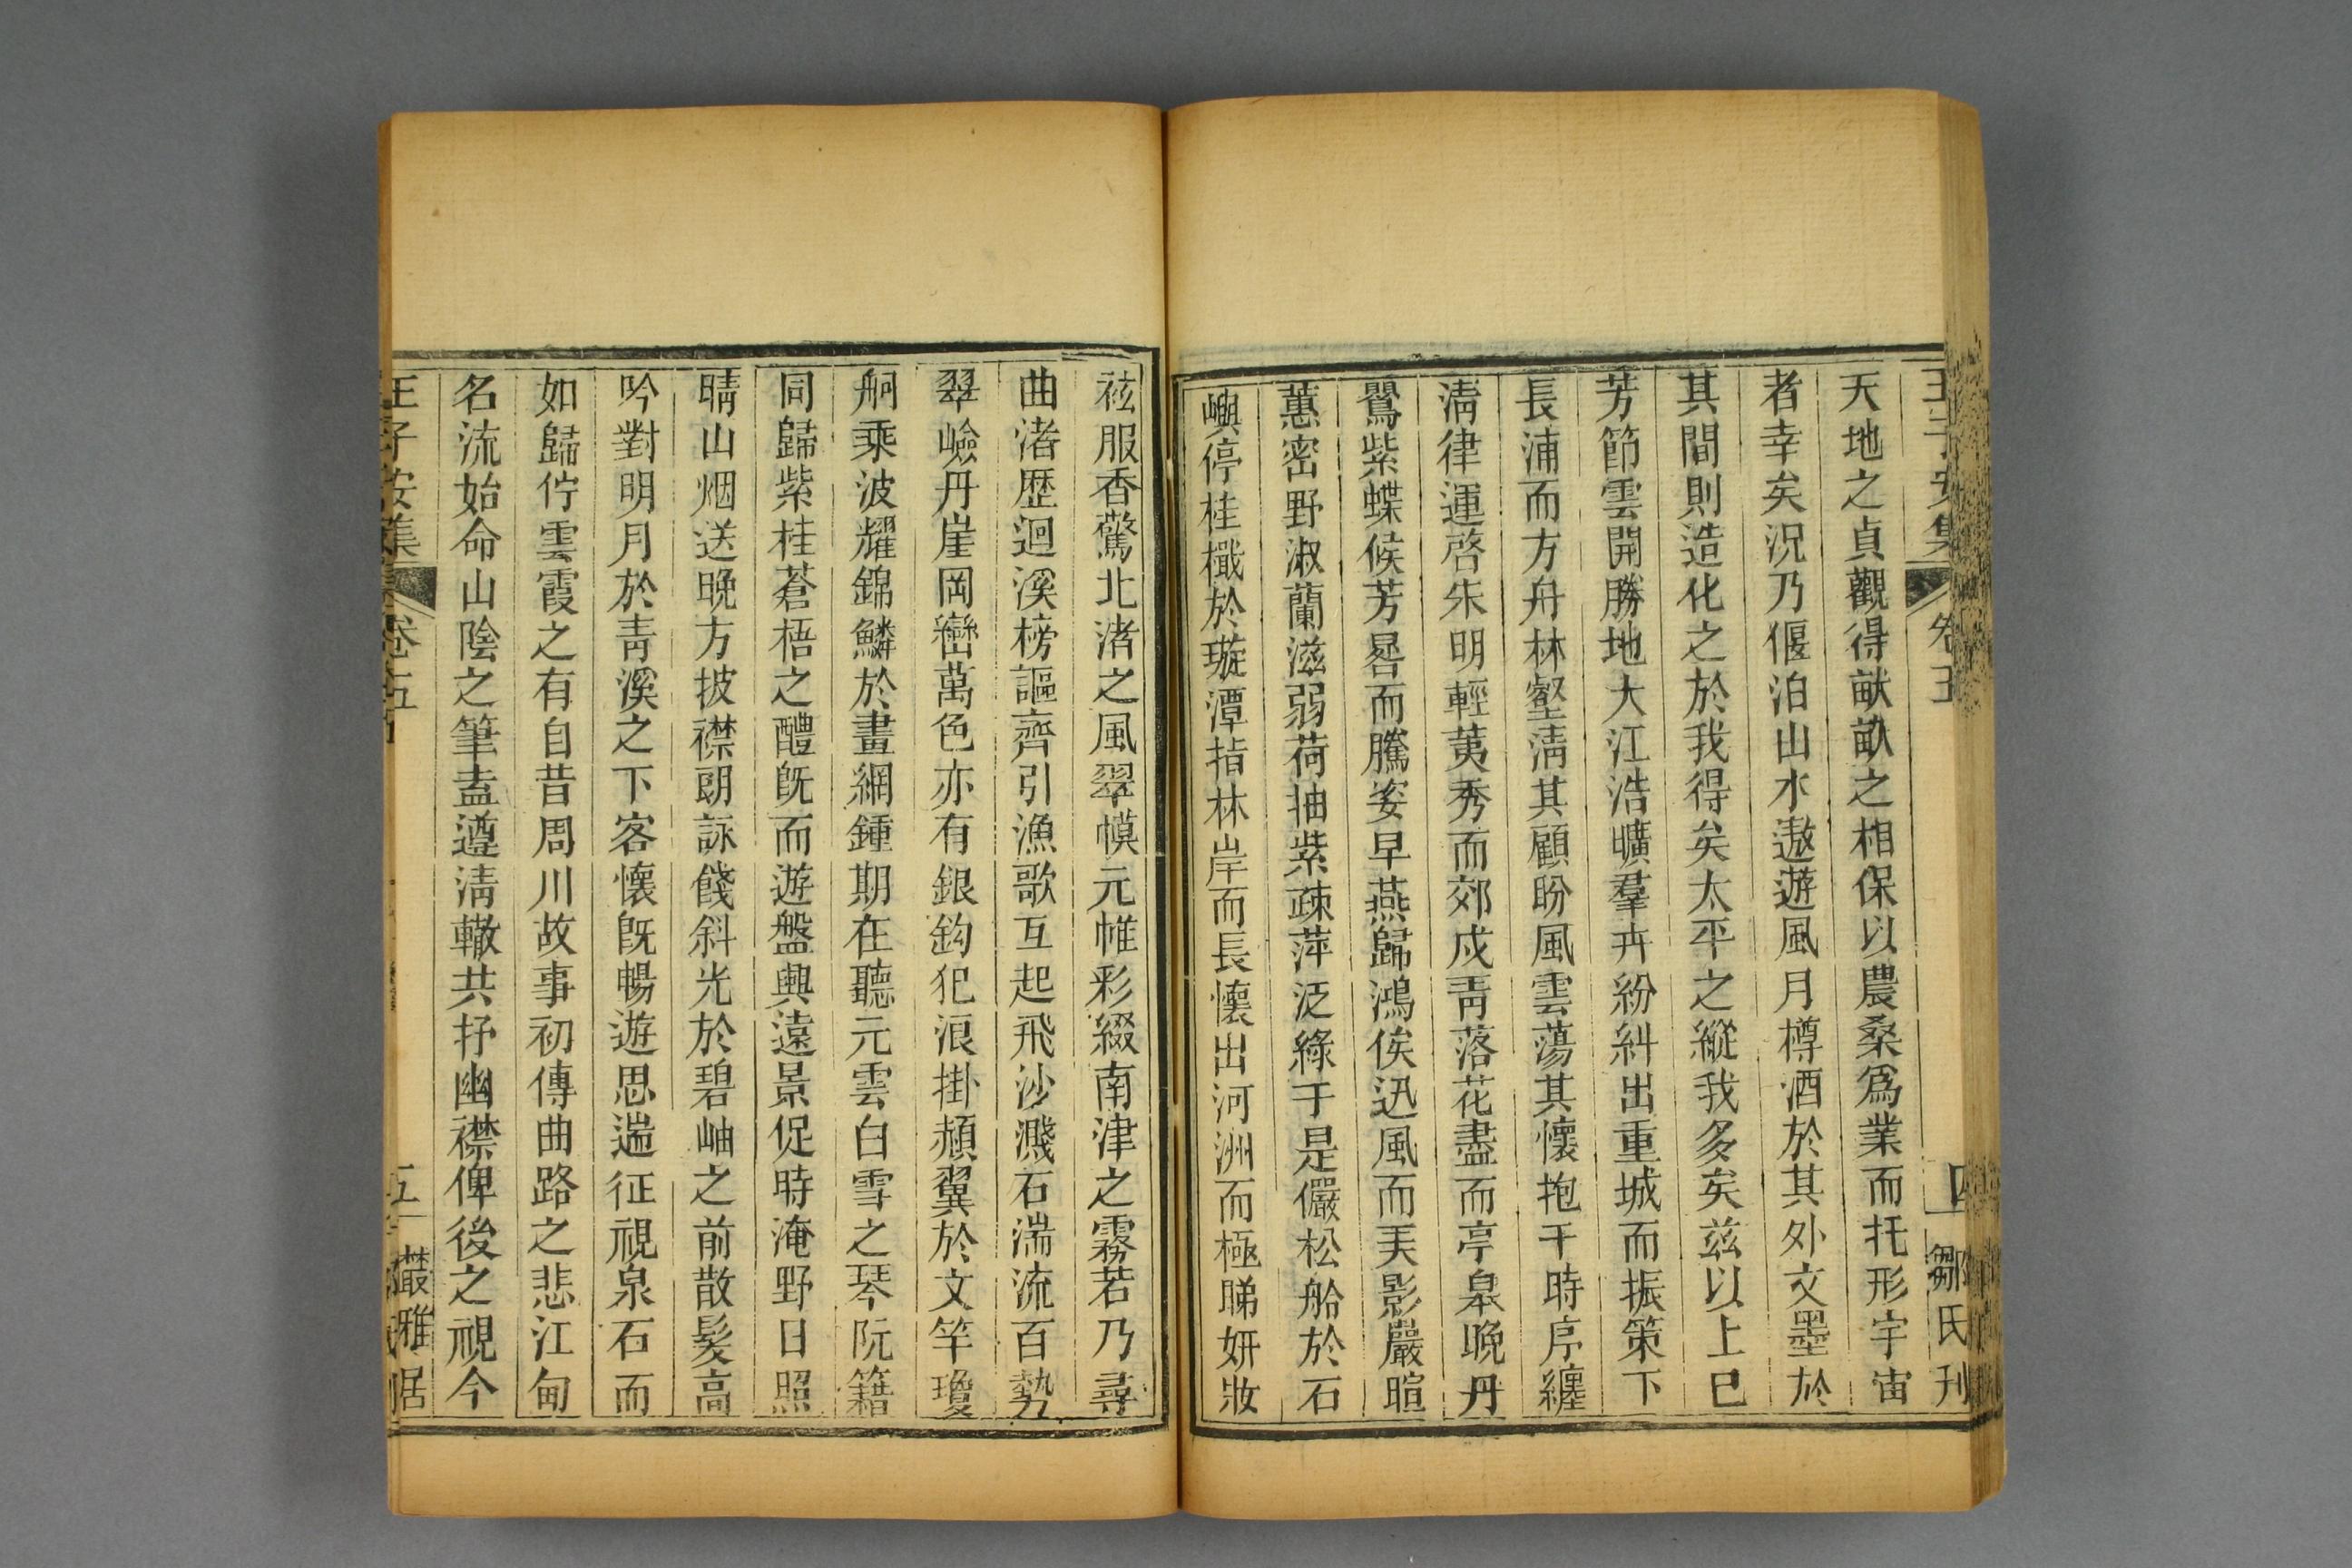 王子安集 卷五 四 鄒氏刊
天地之貞觀得畎畝之相保以農桑爲業而托形宇宙
者幸矣況乃偃泊山水遨遊風月樽酒於其外文墨於
其間則造化之於我得矣太平之縱我多矣茲以上巳
芳節雲開勝地大江浩曠羣卉紛糾出重城而振策下
長浦而方舟林壑淸其顧盼風雲蕩其懷抱于時序纏
淸律運啓朱明輕荑秀而郊戍靑落花盡而亭皋晚丹
鸎紫蝶候芳晷而騰姿早燕歸鴻俟迅風而弄影巖暄
蕙密野淑蘭滋弱荷抽紫疎萍泛綠于是儼松船於石
嶼停桂檝於璇潭指林岸而長懷出河洲而極睇妍妝
袨服香驚北渚之風翠幙元帷彩綴南津之霧若乃尋
曲渚歴迴溪榜謳齊引漁歌互起飛沙濺石湍流百勢
翠嶮丹崖岡巒萬色亦有銀鈎犯浪掛頳翼於文竿瓊
舸乘波耀錦鱗於畫網鍾期在聽元雲白雪之琴阮籍
同歸紫桂蒼梧之醴旣而遊盤興遠景促時淹野日照
晴山烟送晚方披襟朗詠餞斜光於碧岫之前散髮高
吟對明月於靑溪之下客懷旣暢遊思遄征視泉石而
如歸佇雲霞之有自昔周川故事初傳曲路之悲江甸
名流始命山陰之筆盍遵淸轍共抒幽襟俾後之視今
王子安集 卷五 五 叢雅居